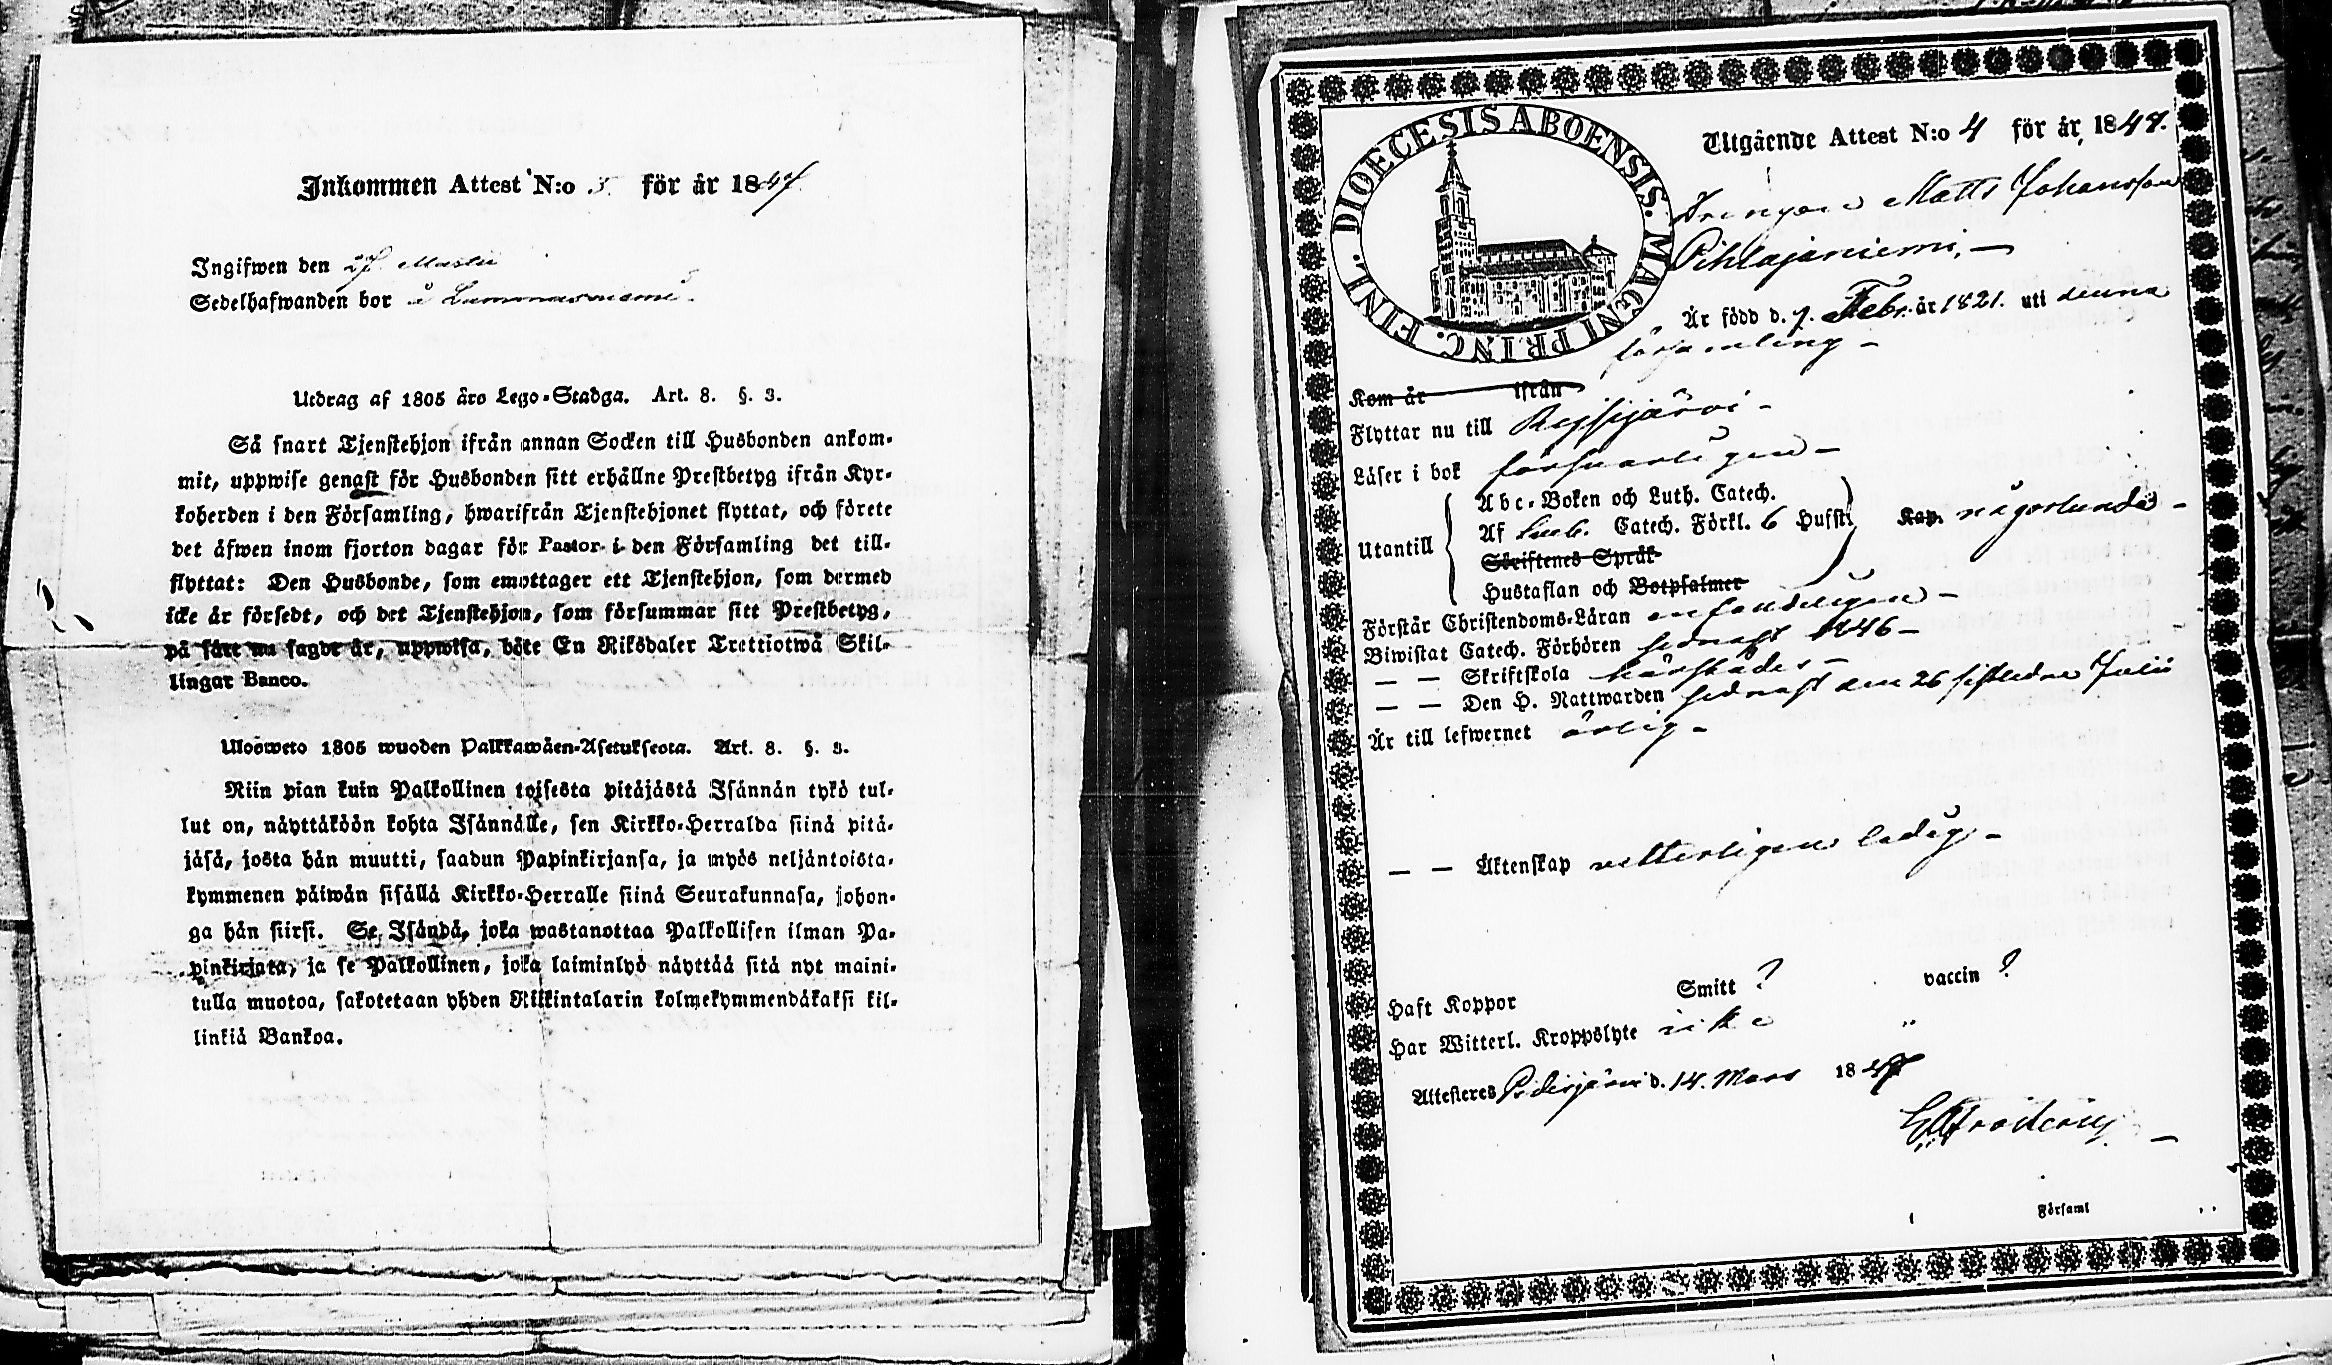 Inkommen Attest N:o 5 för år 1847
Ingifwen den 27 Martii
Sedelhafwanden bor å
Utdrag af 1805 års Lego-Stadga. Art. 8. §. 3.
Så snart Tjenstehjon ifrån annan Socken till Husbonden ankom-
mit, uppwise genast för Husbonden sitt erhållne Prestbetyg ifrån Kyr-
koherden i den Församling, hwarifrån Tjenstehjonet flyttat, och förete
det äfwen inom fjorton dagar för Pastor i den Församling det till-
flyttat: Den Husbonde, som emottager ett Tjenstehjon, som dermed
icke är försedt, och det Tjenstehjon, som försummar sitt Prestbetyg,
på sätt nu sagdt är, uppwisa, böte En Riksdaler Trettiotwå Skil-
lingar Banco.
Ulosweto 1805 wuoden Palkkawäen-Asetuksesta. Art. 8. §. 3.
Niin pian kuin Palkollinen toisesta pitäjästä Isännän tykö tul-
lut on, näyttäköön kohta Isännälle, sen Kirkko-Herralda siinä pitä-
jäsä, josta hän muutti, saadun Papinkirjansa, ja myös neljäntoista-
kymmenen päiwän sisällä Kirkko-Herralle siinä Seurakunnasa, johon-
ga hän siirsi. Se Isändä, joka wastanottaa Palkollisen ilman Pa-
pinkirjata, ja se Palkollinen, joka laiminlyö näyttää sitä nyt maini-
tulla muotoa, sakotetaan yhden Riikintalarin kolmekymmendäkaksi kil-
linkiä Bankoa.
DIOECESIS ABOENSIS. MAGNI PRINC. FINL.
Utgående Attest N:o 4 för år 1847.
Drengen Matts Johansson
Pihlajaniemi, —
Är född d. 7. Febr. år 1821. uti denna
församling –
Kom år ifrån
Flyttar nu till Rejsijärvi –
Läser i bok försvarligen –
Utantill
Abc-Boken och Luth. Catech.
Af Catech. Förkl. 6 Hufst.
Skriftenes Språk
Hustaflan och Botpsalmer
Kap. någorlunda –
Förstår Christendoms-Läran enfaldeligen –
Biwistat Catech. Förhören sednast 1846 –
— — Skriftskola
— — Den H. Nattwarden sednast den 26 sistledne Julii
Är till lefwernet ärlig –
— — Äktenskap vetterligen ledig –
Haft Koppor Smitt ? vaccin ?
Har Witterl. Kroppslyte icke "
Attesteres Pidisjärvi d. 14. Mars 1847
Församl